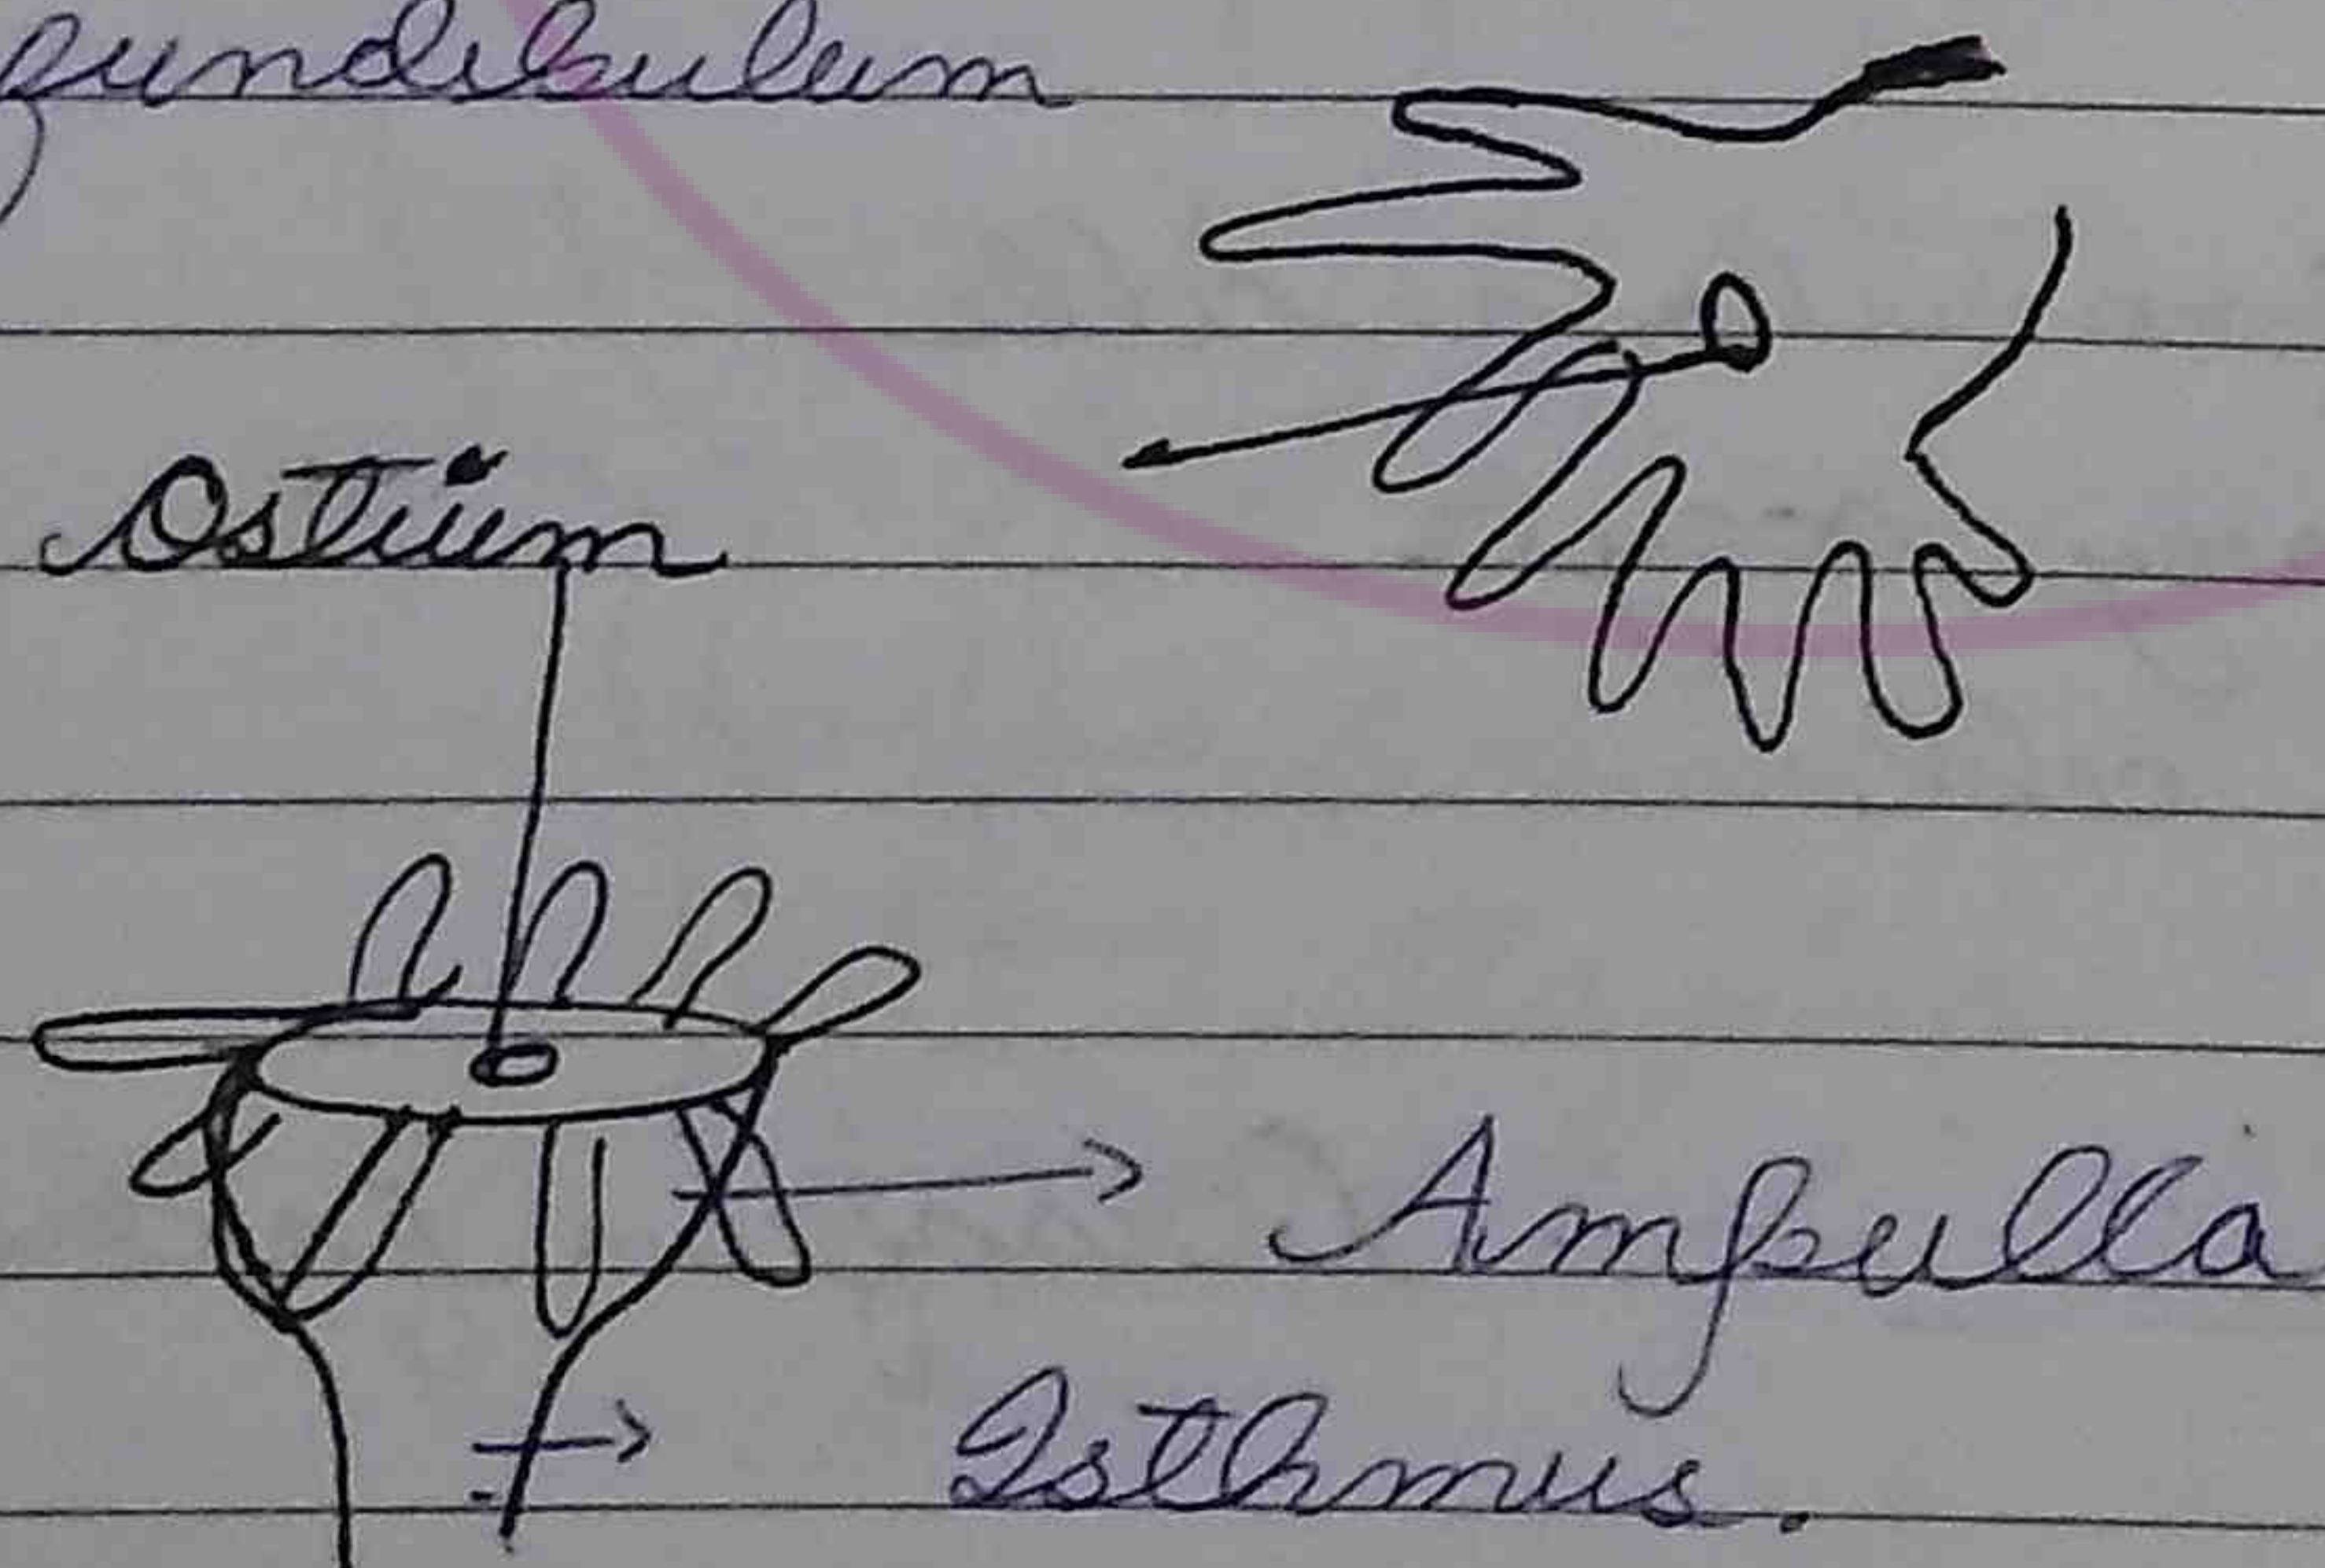 fundibulum
Ostium
Ampulla
Isthmus.